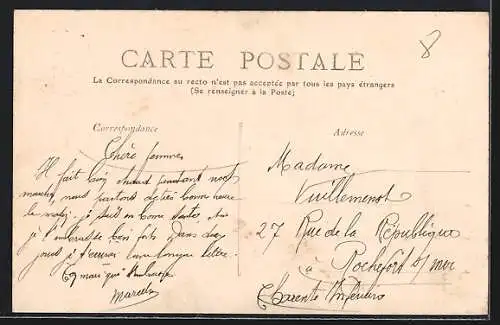 8
CARTE POSTALE
La Correspondance au recto n'est pas acceptée par tous les pays étrangers
(Se renseigner à la Poste)
Correspondance
Adresse
Chère femme
Il fait bien chaud pendant nos
nous partons de très bonne heure
le matin. je suis en bonne santé,
je t'embrasse bien fort, dans
jours je t'écrirai une longue lettre.
Ton mari qui t'embrasse
Marcel
Madame
Vuillemenot
27 Rue de la République
à
Rochefort s/ mer
Charente Inférieure